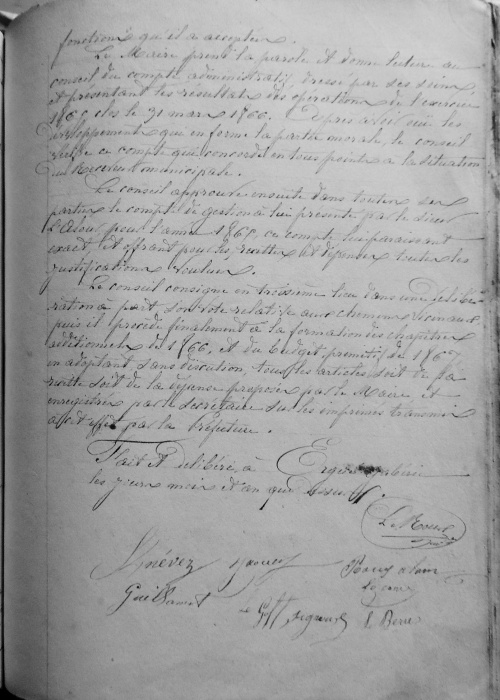 fonctions qu'il a acceptées.
Le Maire prend la parole et donne lecture au
conseil du compte administratif, dressé par ses soins
et présentant les résultats des opérations de l'exercice
1865, clos le 31 mars 1866. Après avoir ouï les
développements qui en forme la partie morale, le conseil
de ce compte qui concorde en tous points à la situation
du Receveur municipale.
Le conseil approuve ensuite dans toutes ses
parties le compte de gestion à lui présenté par le sieur
pour l'année 1865, ce compte lui paraissant
exact et offrant pour les recettes et dépenses toutes les
justifications voulues.
Le conseil consigne en troisième lieu dans une délibé-
ration à part son vote relatif aux chemins vicinaux
puis il procède finalement à la formation des chapitres
additionnels de 1866, et du budget primitif de 1867
en adoptant, sans discution, tous les articles, soit de la
recette soit de la dépense proposés par le Maire et
enregistrés par le secrétaire sur les imprimés transmis
à cet effet par la Préfecture.
Fait et délibéré, à Ergué-Gabéric
les jour mois et an que dessus.